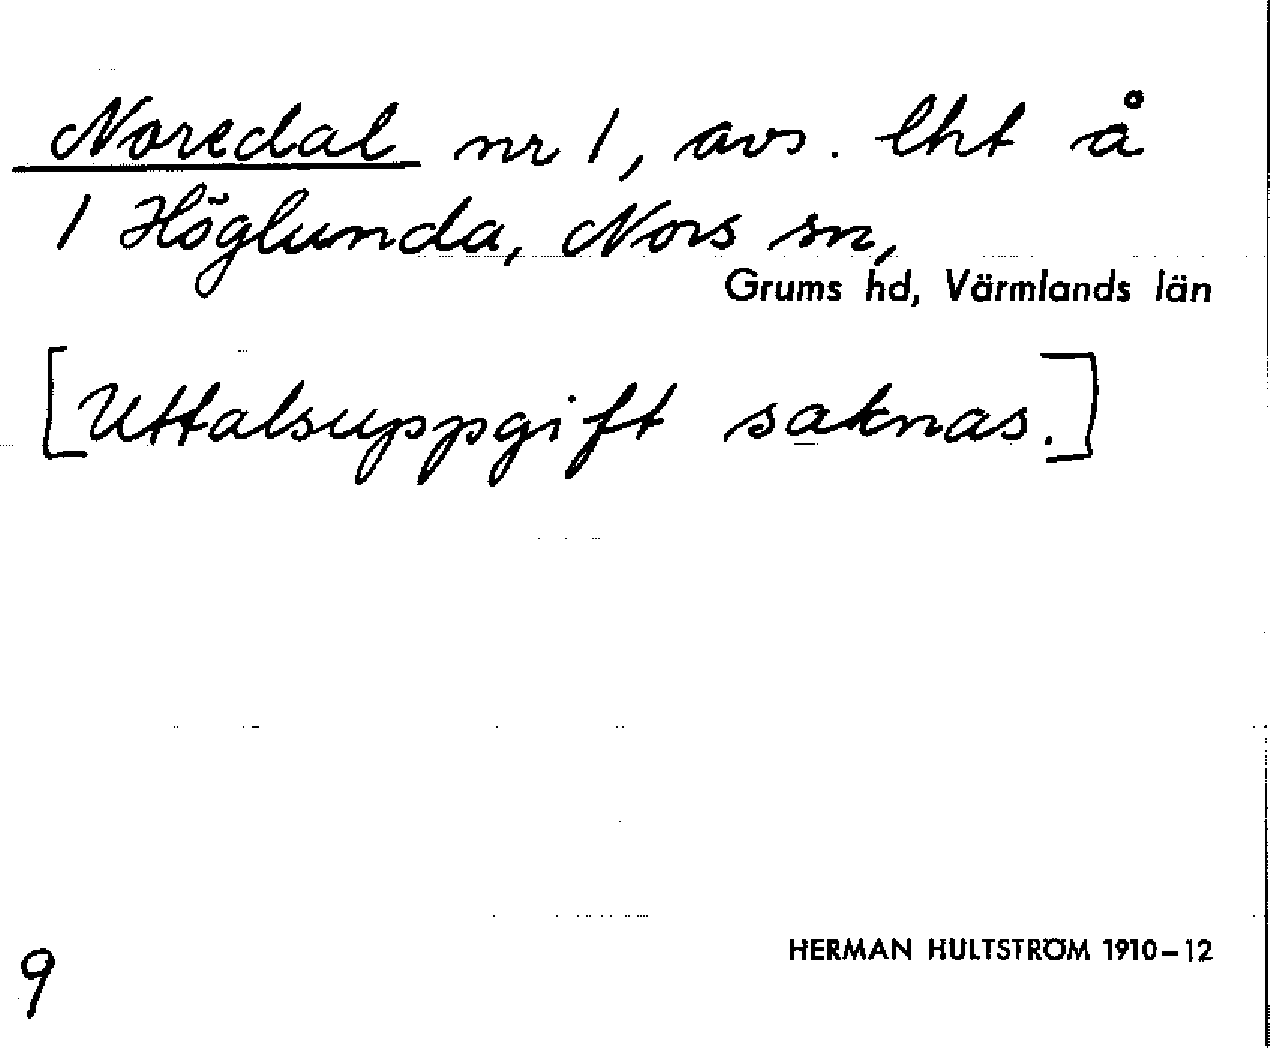 Noredal nr 1, avs. lht å
1 Höglunda, Nors sn,
Grums hd, Värmlands län
[Uttalsuppgift saknas.]
HERMAN HULTSTRÖM 1910-12
9